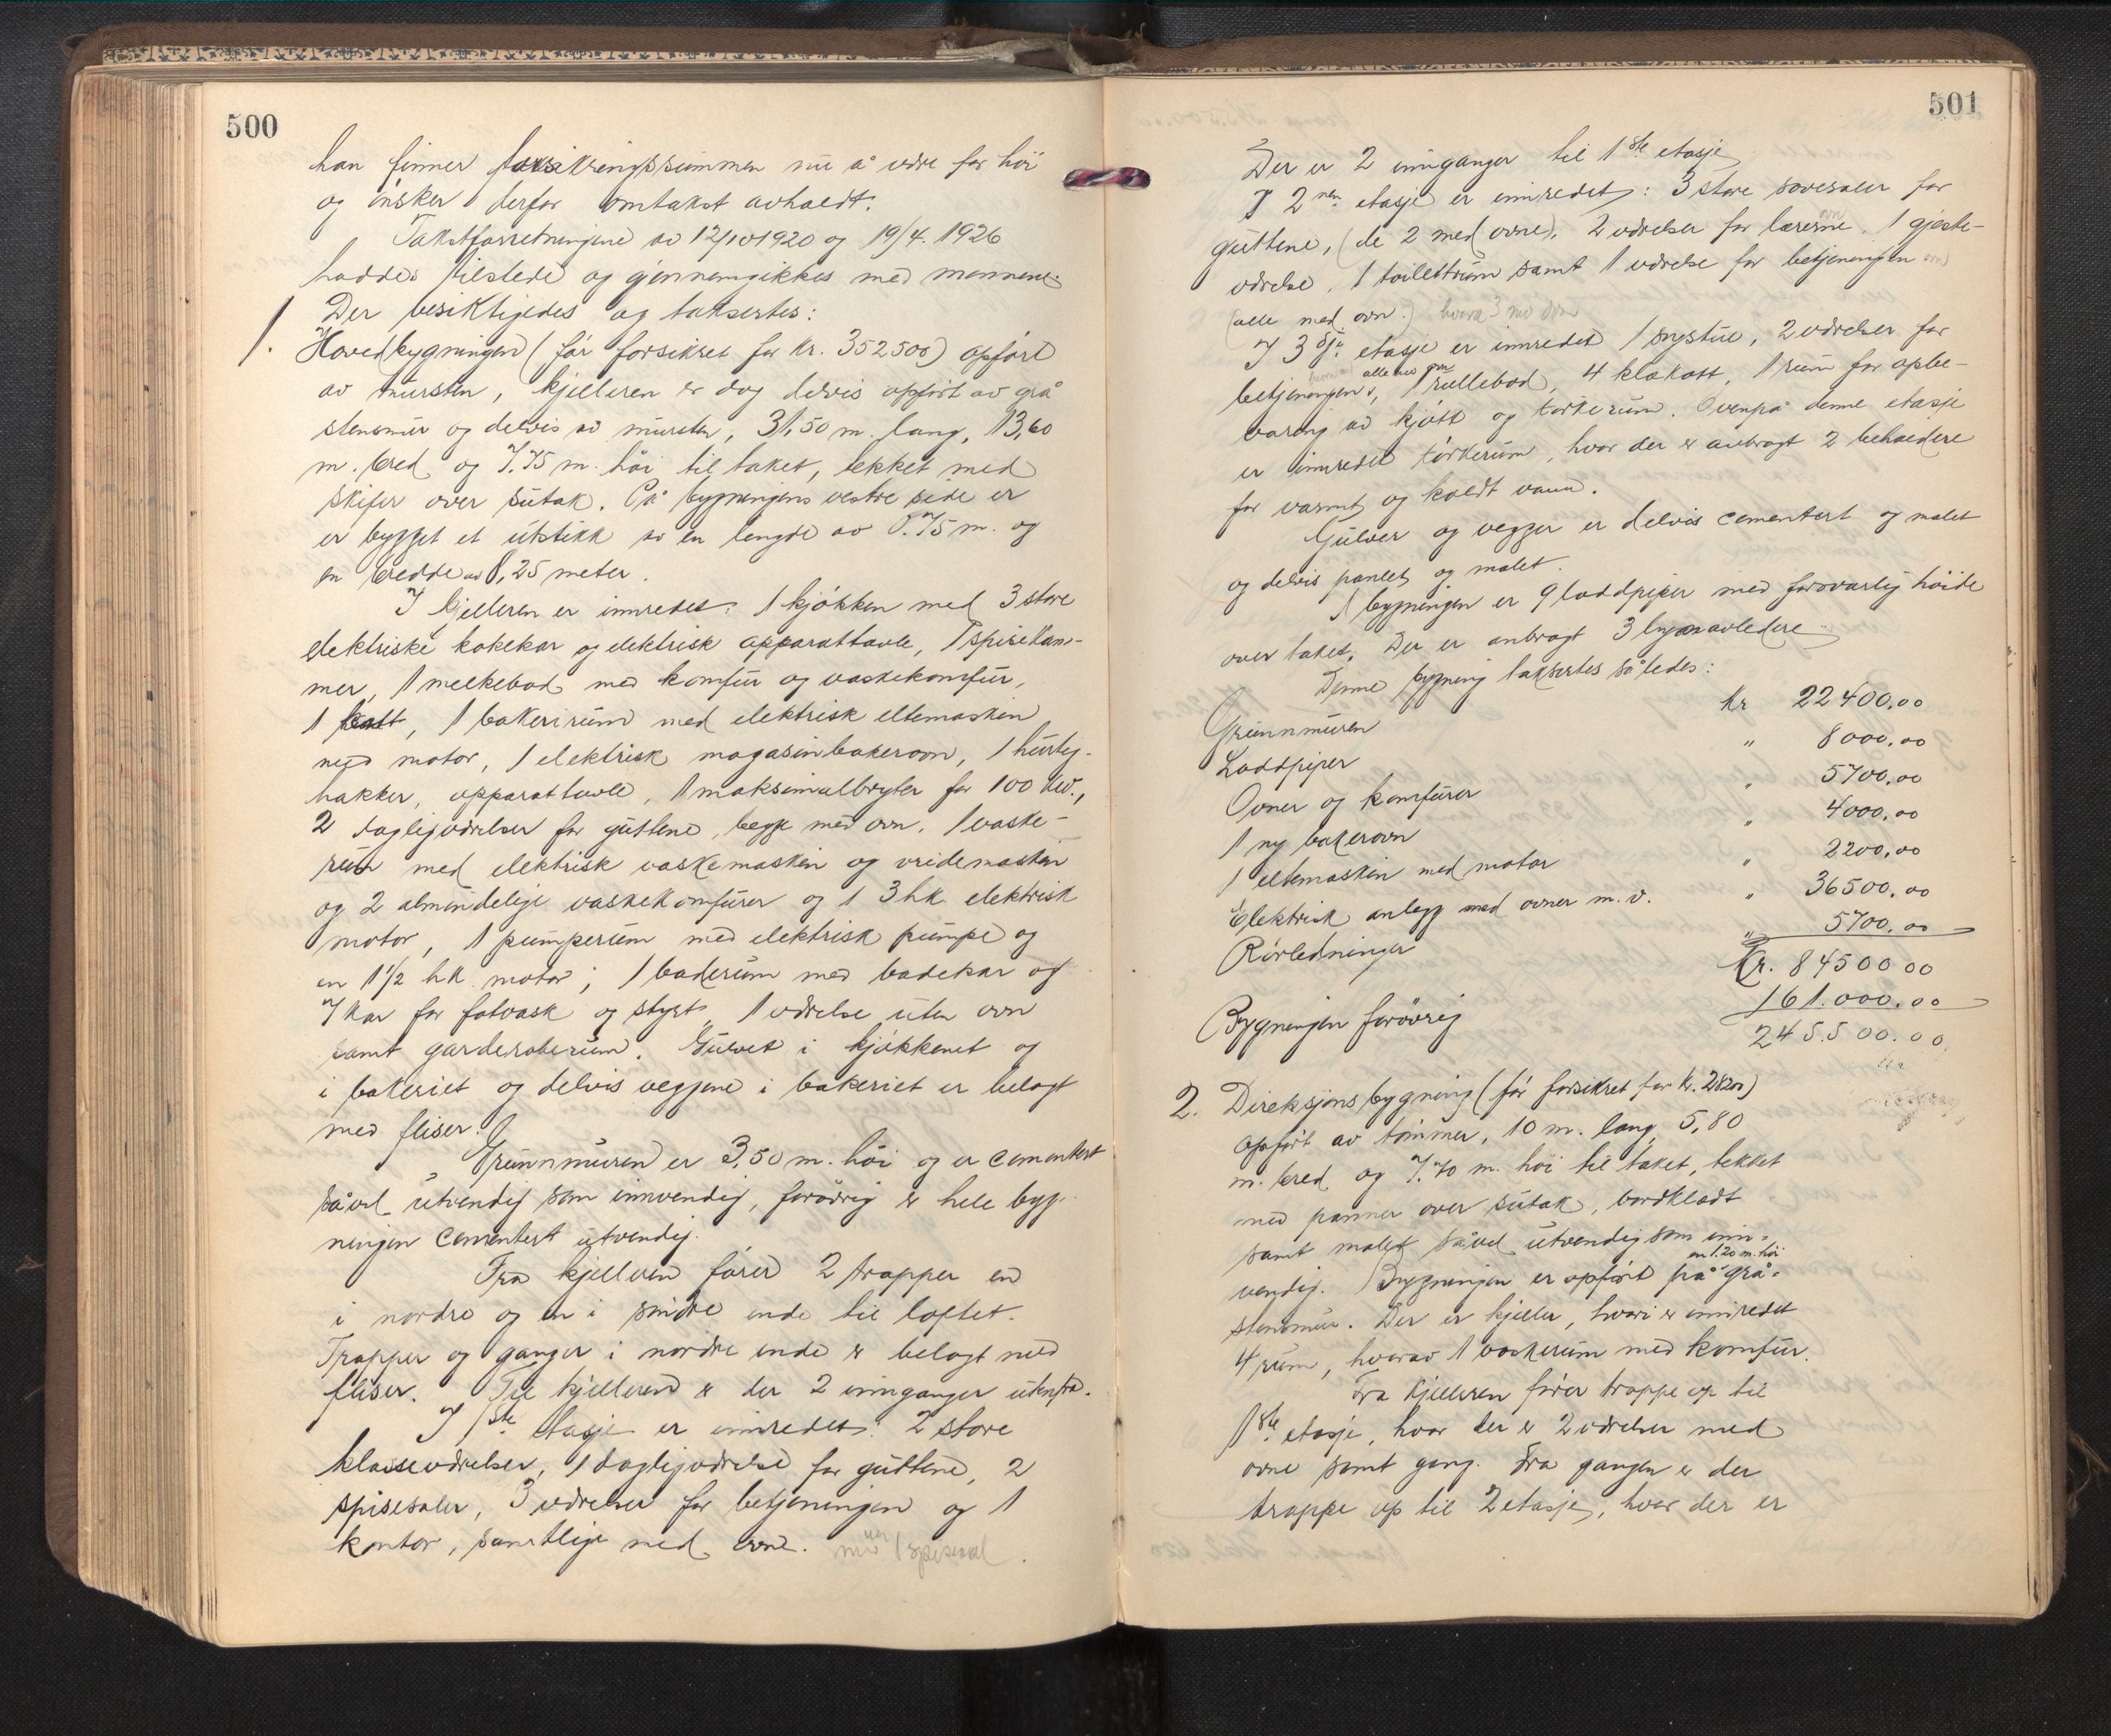 500
han finner forsikringssummen nu å være for høi
og ønsker derfor omtakst avholdt.
Takstforretningene av 12/10 1920 og 19/4. 1926
haddes tilstede og gjennemgikkes med mennene.
Der besiktigedes og taksertes:
1. Hovedbygningen (før forsikret for kr. 352500) opført
av mursten, kjelleren er dog delvis opført av grå
stensmur og delvis av mursten, 31,50 m. lang, 13,60
m. bred og 7.75 m. høi til taket, tekket med
skifer over sutak. På bygningens vestre side er
er bygget et utstikk av en lengde av 0.75 m. og
en bredde av 8,25 meter.
I kjelleren er innredet: 1 kjøkken med 3 store
elektriske kokekar og elektrisk apparattavle, 1 spisekam-
mer, 1 melkebod med komfur og vaskekomfur,
1 kott, 1 bakerirum med elektrisk eltemaskin
med motor, 1 elektrisk magasinbakerovn, 1 hurtig-
hakker, apparattavle, 1 maksimalbryter for 100 kw.,
2 dagligværelser for guttene, begge med ovn, 1 vaske-
rum med elektrisk vaskemaskin og vridemaskin
og 2 almindelige vaskekomfurer og 1 3 hk elektrisk
motor, 1 pumperum med elektrisk pumpe og
en 1 1/2 hk motor; 1 baderum med badekar og
7 kar for fotvask og styrt, 1 værelse uten ovn
samt garderoberum. Gulvet i kjøkkenet og
i bakeriet og delvis veggene i bakeriet er belagt
med fliser.
Grunnmuren er 3,50 m. høi og er cementert
såvel utvendig som innvendig, forøvrig er hele byg-
ningen cementert utvendig.
Fra kjelleren fører 2 trapper en
i nordre og en i søndre ende til loftet.
Trapper og ganger i nordre ende er belagt med
fliser. Til kjelleren er der 2 innganger utenfra.
I 1ste etasje er innredet: 2 store
klasseværelser, 1 dagligværelse for guttene, 2
spisesaler, 3 værelser for betjeningen og 1
kontor, samtlige med ovne. 1 spisesal.
501
Der er 2 innganger til 1ste etasje
I 2nen etasje er innredet: 3 store sovesaler for
guttene, (de 2 med ovne), 2 værelser for lærerne, 1 gjeste-
værelse, 1 toilettrum samt 1 værelse for betjeningen
(alle med ovn.) hvorav 3 med ovn
I 3dje etasje er innredet 1 systue, 2 værelser for
alle med ovn
betjeningen, 1 rullebod, 4 klækott, 1 rum for opbe-
varing av kjøtt og tørkerum. Ovenpå denne etasje
er innredet tørkerum, hvor der er anbragt 2 beholdere
for varmt og koldt vann.
Gulver og vegger er delvis cementert og malet
og delvis panelt og malet.
I bygningen er 9 loddpiper med forsvarlig høide
over taket. Der er anbragt 3 lynavledere
Denne bygning taksertes således:
Grunnmuren kr 22400.00
Loddpiper " 8000.00
Ovner og komfurer " 5700.00
1 ny bakerovn " 4000.00
1 eltemaskin med motor " 2200.00
Elektrisk anlegg med ovner m.v. " 36500.00
Rørledninger " 5700.00
Kr. 84500 00
Bygningen forøvrig 161.000.00
245.500.00
2. Direksjonsbygning (før forsikret for kr. 28200)
opført av tømmer, 10 m. lang 5,80
m. bred og 7.70 m. høi til taket, tekket
med panner over sutak, bordklædt
samt malet såvel utvendig som inn-
en 1.20 m. høi
vendig. Bygningen er opført på grå-
stensmur. Der er kjeller, hvori er innredet
4 rum, hvorav 1 vaskerum med komfur.
Fra kjelleren fører trappe op til
1ste etasje, hvor der er 2 værelser med
ovne samt gang. Fra gangen er der
trappe op til 2 etasje, hvor der er